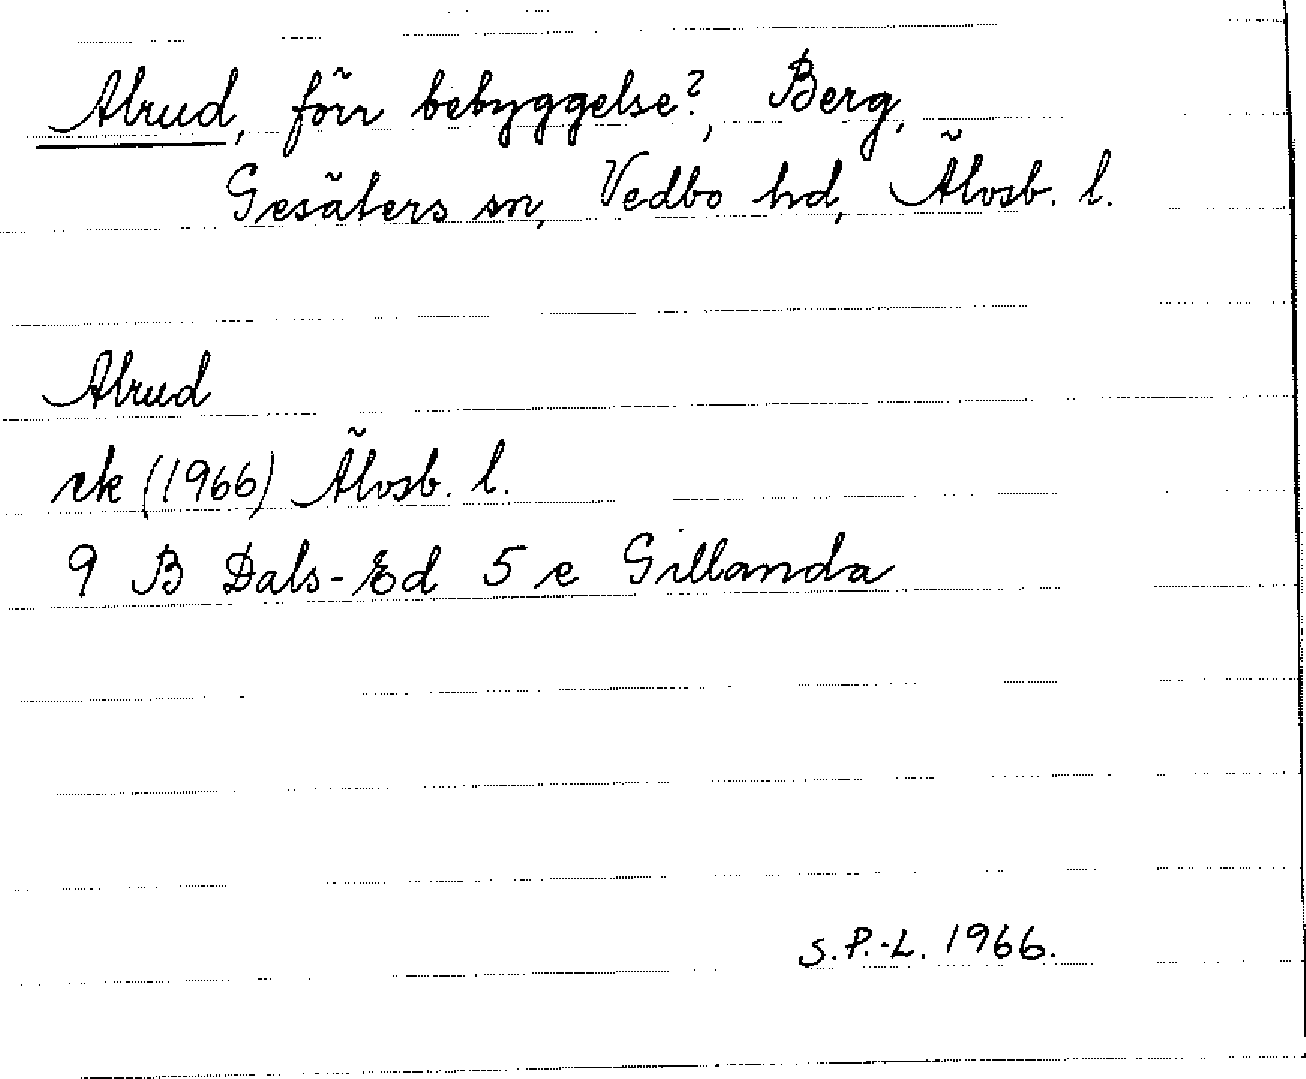 Alrud, förr bebyggelse?, Berg,
Gesäters sn, Vedbo hd, Älvsb. l.
Alrud
rk (1966) Älvsb. l.
9 B Dals-Ed 5 e Gillanda
S. P.-L. 1966.